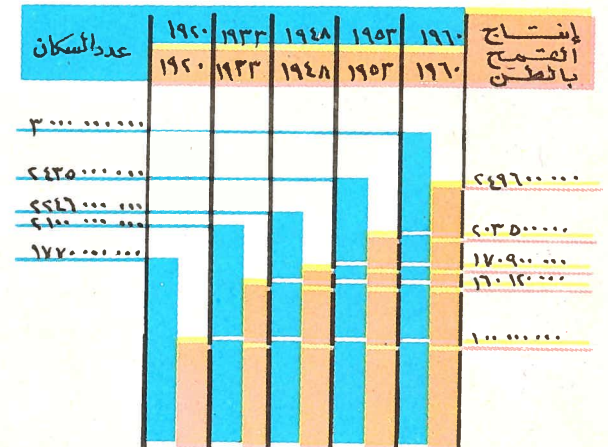 إنتاج
القمح
بالطن
عدد السكان
١٩٢٠ ١٩٣٣ ١٩٤٨ ١٩٥٣ ١٩٦٠
١٩٢٠ ١٩٣٣ ١٩٤٨ ١٩٥٣ ١٩٦٠
٣٠٠٠٠٠٠٠٠٠
٢٤٣٥٠٠٠٠٠٠
٢٢٤٦٠٠٠٠٠٠
٢١٠٠٠٠٠٠٠٠
١٧٧٠٠٠٠٠٠٠
٢٤٩٦٠٠٠٠٠
٢٠٣٥٠٠٠٠٠
١٧٠٩٠٠٠٠٠
١٦٠١٢٠٠٠٠
١٠٠٠٠٠٠٠٠